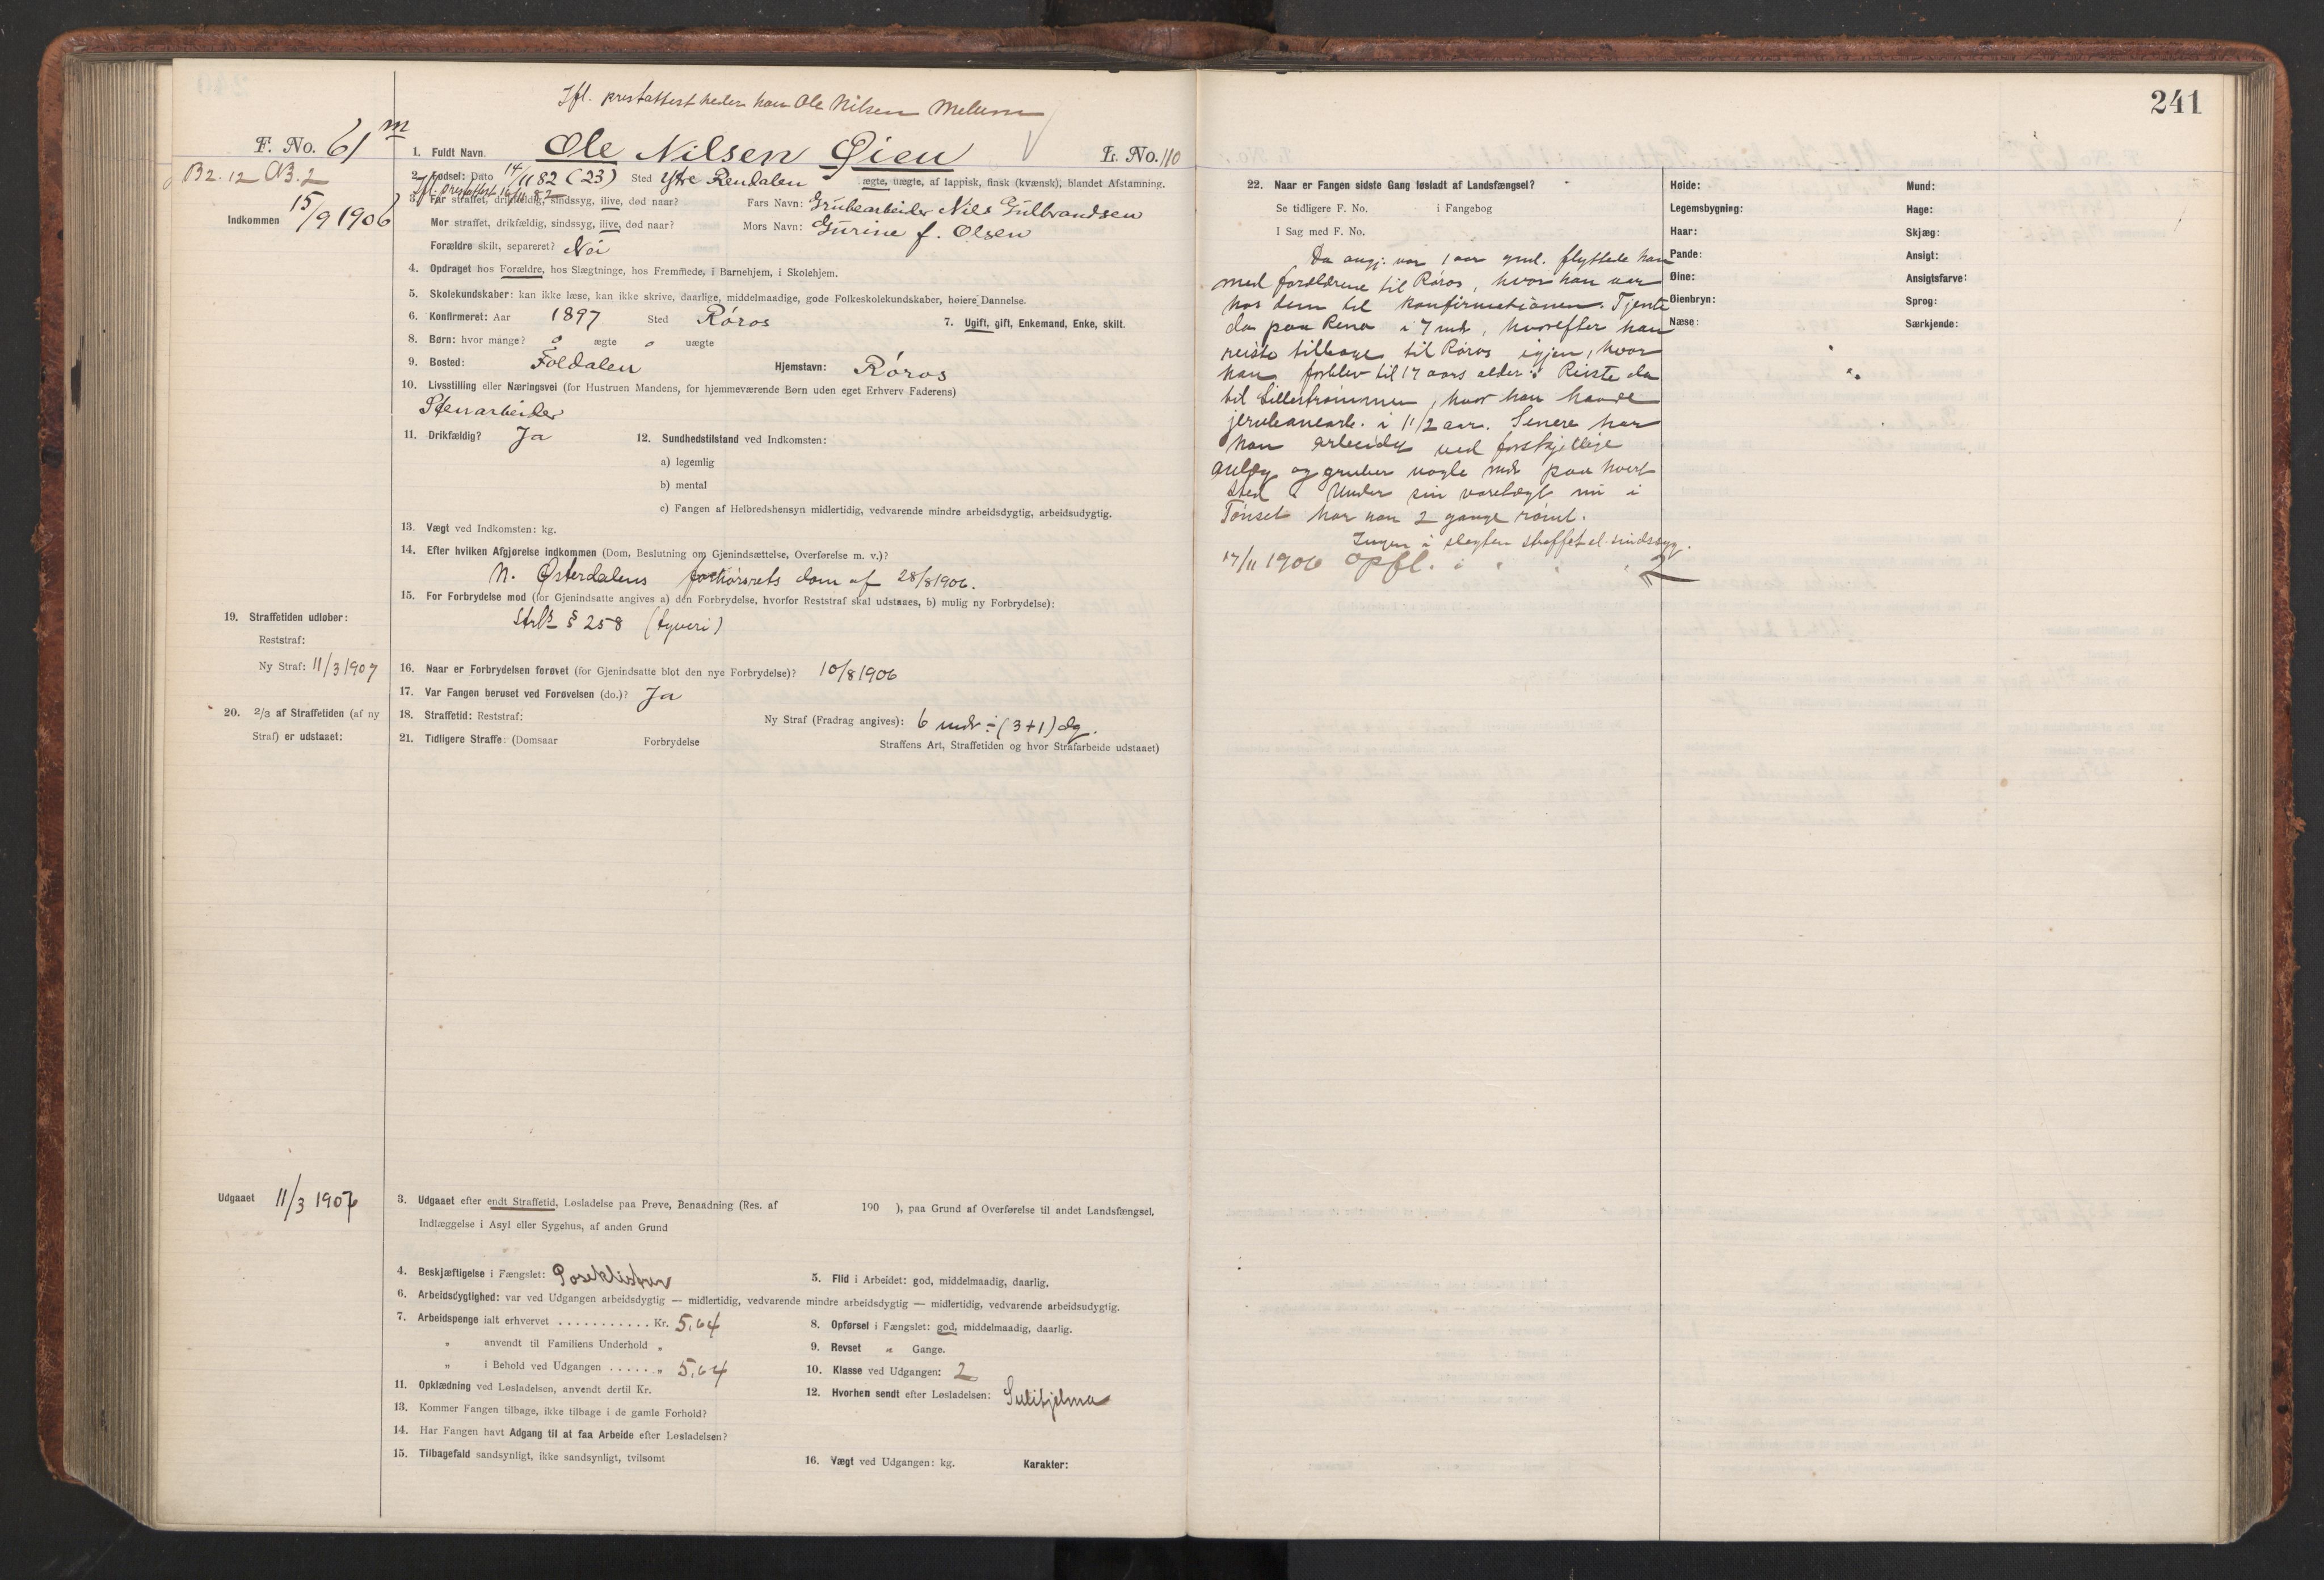 241
Ifl. prestattest heder han Ole Nilsen Melum
F. No. 61 m
B2. 12 OB. 2
Indkommen 15/9 1906
1. Fuldt Navn. Ole Nilsen Øien L. No. 110
2. Fødsel: Dato 14/11 82 (23) Sted Ytre Rendalen ægte, uægte, af lappisk, finsk (kvænsk), blandet Afstamning.
Ifl. prestattest 16/11 82
3. Far straffet, drikfældig, sindssyg, ilive, død naar? Fars Navn: Grubearbeider Nils Gulbrandsen
Mor straffet, drikfældig, sindssyg, ilive, død naar? Mors Navn: Gurine f. Olsen
Forældre skilt, separeret? Nei
4. Opdraget hos Forældre, hos Slægtninge, hos Fremmede, i Barnehjem, i Skolehjem.
5. Skolekundskaber: kan ikke læse, kan ikke skrive, daarlige, middelmaadige, gode Folkeskolekundskaber, høiere Dannelse.
6. Konfirmeret: Aar 1897 Sted Røros 7. Ugift, gift, Enkemand, Enke, skilt.
8. Børn: hvor mange? 0 ægte 0 uægte
9. Bosted: Foldalen Hjemstavn: Røros
10. Livsstilling eller Næringsvei (for Hustruen Mandens, for hjemmeværende Børn uden eget Erhverv Faderens)
Stenarbeider
11. Drikfældig? Ja 12. Sundhedstilstand ved Indkomsten:
a) legemlig
b) mental
c) Fangen af Helbredshensyn midlertidig, vedvarende mindre arbeidsdygtig, arbeidsudygtig.
13. Vægt ved Indkomsten: kg.
14. Efter hvilken Afgjørelse indkommen (Dom, Beslutning om Gjenindsættelse, Overførelse m. v.)?
N. Østerdalens forhørsrets dom af 28/8 1906.
15. For Forbrydelse mod (for Gjenindsatte angives a) den Forbrydelse, hvorfor Reststraf skal udstaaes, b) mulig ny Forbrydelse):
Strl § 258 (tyveri)
19. Straffetiden udløber:
Reststraf:
Ny Straf: 11/3 1907
16. Naar er Forbrydelsen forøvet (for Gjenindsatte blot den nye Forbrydelse)? 10/8 1906
17. Var Fangen beruset ved Forøvelsen (do.)? Ja
20. 2/3 af Straffetiden (af ny
Straf) er udstaaet:
18. Straffetid: Reststraf: Ny Straf (Fradrag angives): 6 mdr ÷ (3+1) dg.
21. Tidligere Straffe: (Domsaar Forbrydelse Straffens Art, Straffetiden og hvor Strafarbeide udstaaet)
Udgaaet 11/3 1907
3. Udgaaet efter endt Straffetid, Løsladelse paa Prøve, Benaadning (Res. af 190 ), paa Grund af Overførelse til andet Landsfængsel,
Indlæggelse i Asyl eller Sygehus, af anden Grund
4. Beskjæftigelse i Fængslet: Poseklistrer 5. Flid i Arbeidet: god, middelmaadig, daarlig.
6. Arbeidsdygtighed: var ved Udgangen arbeidsdygtig — midlertidig, vedvarende mindre arbeidsdygtig — midlertidig, vedvarende arbeidsudygtig.
7. Arbeidspenge ialt erhvervet . . . . . . . . . . . Kr. 5,64 8. Opførsel i Fængslet: god, middelmaadig, daarlig.
„ anvendt til Familiens Underhold „ 9. Revset „ Gange.
„ i Behold ved Udgangen . . . . . „ 5,64 10. Klasse ved Udgangen: 2
11. Opklædning ved Løsladelsen, anvendt dertil Kr. 12. Hvorhen sendt efter Løsladelsen: Sulitjelma
13. Kommer Fangen tilbage, ikke tilbage i de gamle Forhold?
14. Har Fangen havt Adgang til at faa Arbeide efter Løsladelsen?
15. Tilbagefald sandsynligt, ikke sandsynligt, tvilsomt 16. Vægt ved Udgangen: kg. Karakter:
22. Naar er Fangen sidste Gang løsladt af Landsfængsel?
Se tidligere F. No. i Fangebog
I Sag med F. No.
Da angj. var 1 aar gml. flyttede han
med forældrene til Røros, hvor han var
hos dem til konfirmationen. Tjente
da paa Rena i 7 mdr, hvorefter han
reiste tilbage til Røros igjen, hvor
han forblev til 17 aars alder. Reiste da
til Lillestrømmen, hvor han havde
jernbanearb. i 1 1/2 aar. Senere har
han arbeidet ved forskjellige
anlæg og gruber nogle mdr paa hvert
sted. Under sin varetægt nu i
Tønset har han 2 gange rømt.
Ingen i slegten straffet el. sindssyg.
17/11 1906 opfl. i 2
Høide: Mund:
Legemsbygning: Hage:
Haar: Skjæg:
Pande: Ansigt:
Øine: Ansigtsfarve:
Øienbryn: Sprog:
Næse: Særkjende: